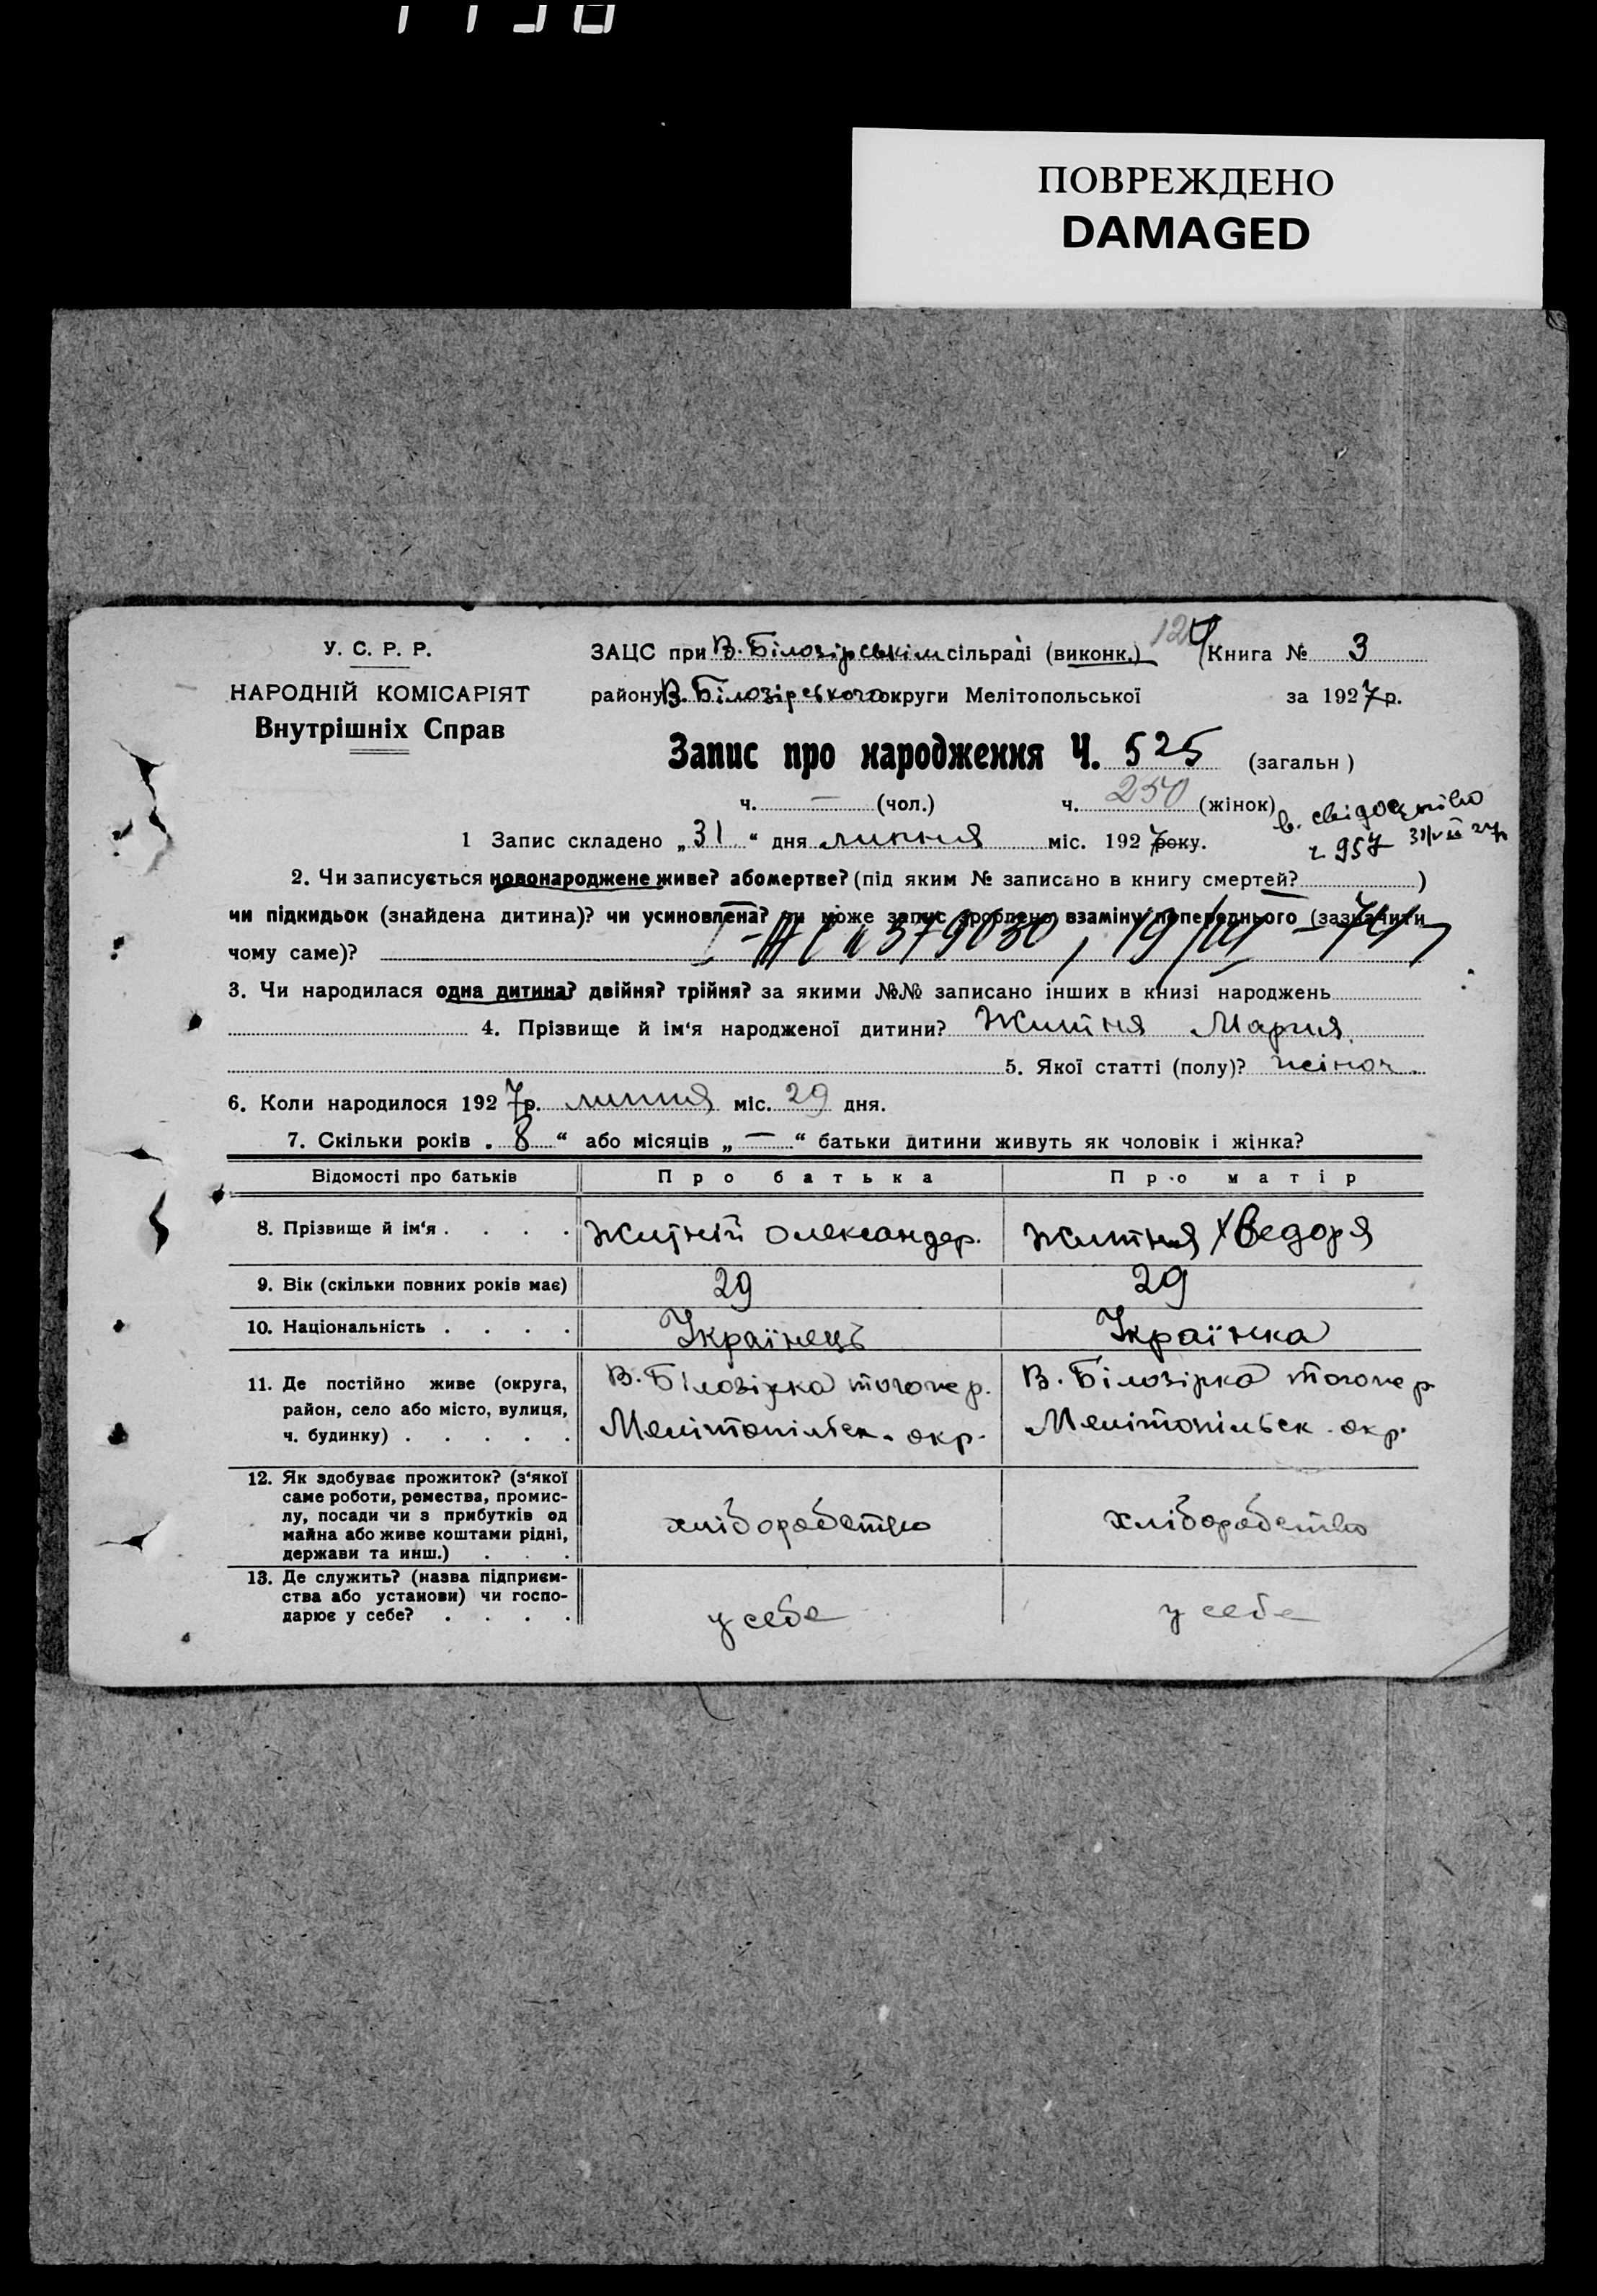 ПОВРЕЖДЕНО
DAMAGED
У. С. Р. Р.
НАРОДНІЙ КОМІСАРІЯТ
Внутрішніх Справ
ЗАЦС при В. Білозірськім сільраді (виконк.) Книга № 3
району В. Білозірського округи Мелітопольської за 1927 р.
Запис про народження Ч. 525 (загальн)
ч. — (чол.) ч. 250 (жінок)
в. свідоцтво
ч 957 31/VII 27р
1 Запис складено „31“ дня липня міс. 1927 року.
2. Чи записується новонароджене живе? або мертве? (під яким № записано в книгу смертей? )
чи підкидьок (знайдена дитина)? чи усиновлена? чи може запис зроблено взаміну попереднього (зазначити
чому саме)? 379030, 19/III-74
3. Чи народилася одна дитина? двійня? трійня? за якими №№ записано інших в книзі народжень
4. Прізвище й ім'я народженої дитини? Житня Мария
5. Якої статті (полу)? жіноч.
6. Коли народилося 1927 р. липня міс. 29 дня.
7. Скільки років „8“ або місяців „—“ батьки дитини живуть як чоловік і жінка?
Відомості про батьків Про батька Про матір
8. Прізвище й ім'я . . . . Житній Олександер. Житня Хведоря
9. Вік (скільки повних років має) 29 29
10. Національність . . . . Українець Українка
11. Де постійно живе (округа, В. Білозірка тогож р. В. Білозірка тогож р.
район, село або місто, вулиця, Мелітопільск. окр. Мелітопільск. окр.
ч. будинку) . . . . .
12. Як здобуває прожиток? (з'якої
саме роботи, ремества, промис-
лу, посади чи з прибутків од хліборобство хліборобство
майна або живе коштами рідні,
держави та инш.) . . .
13. Де служить? (назва підприєм-
ства або установи) чи госпо-
дарює у себе? . . . . у себе у себе